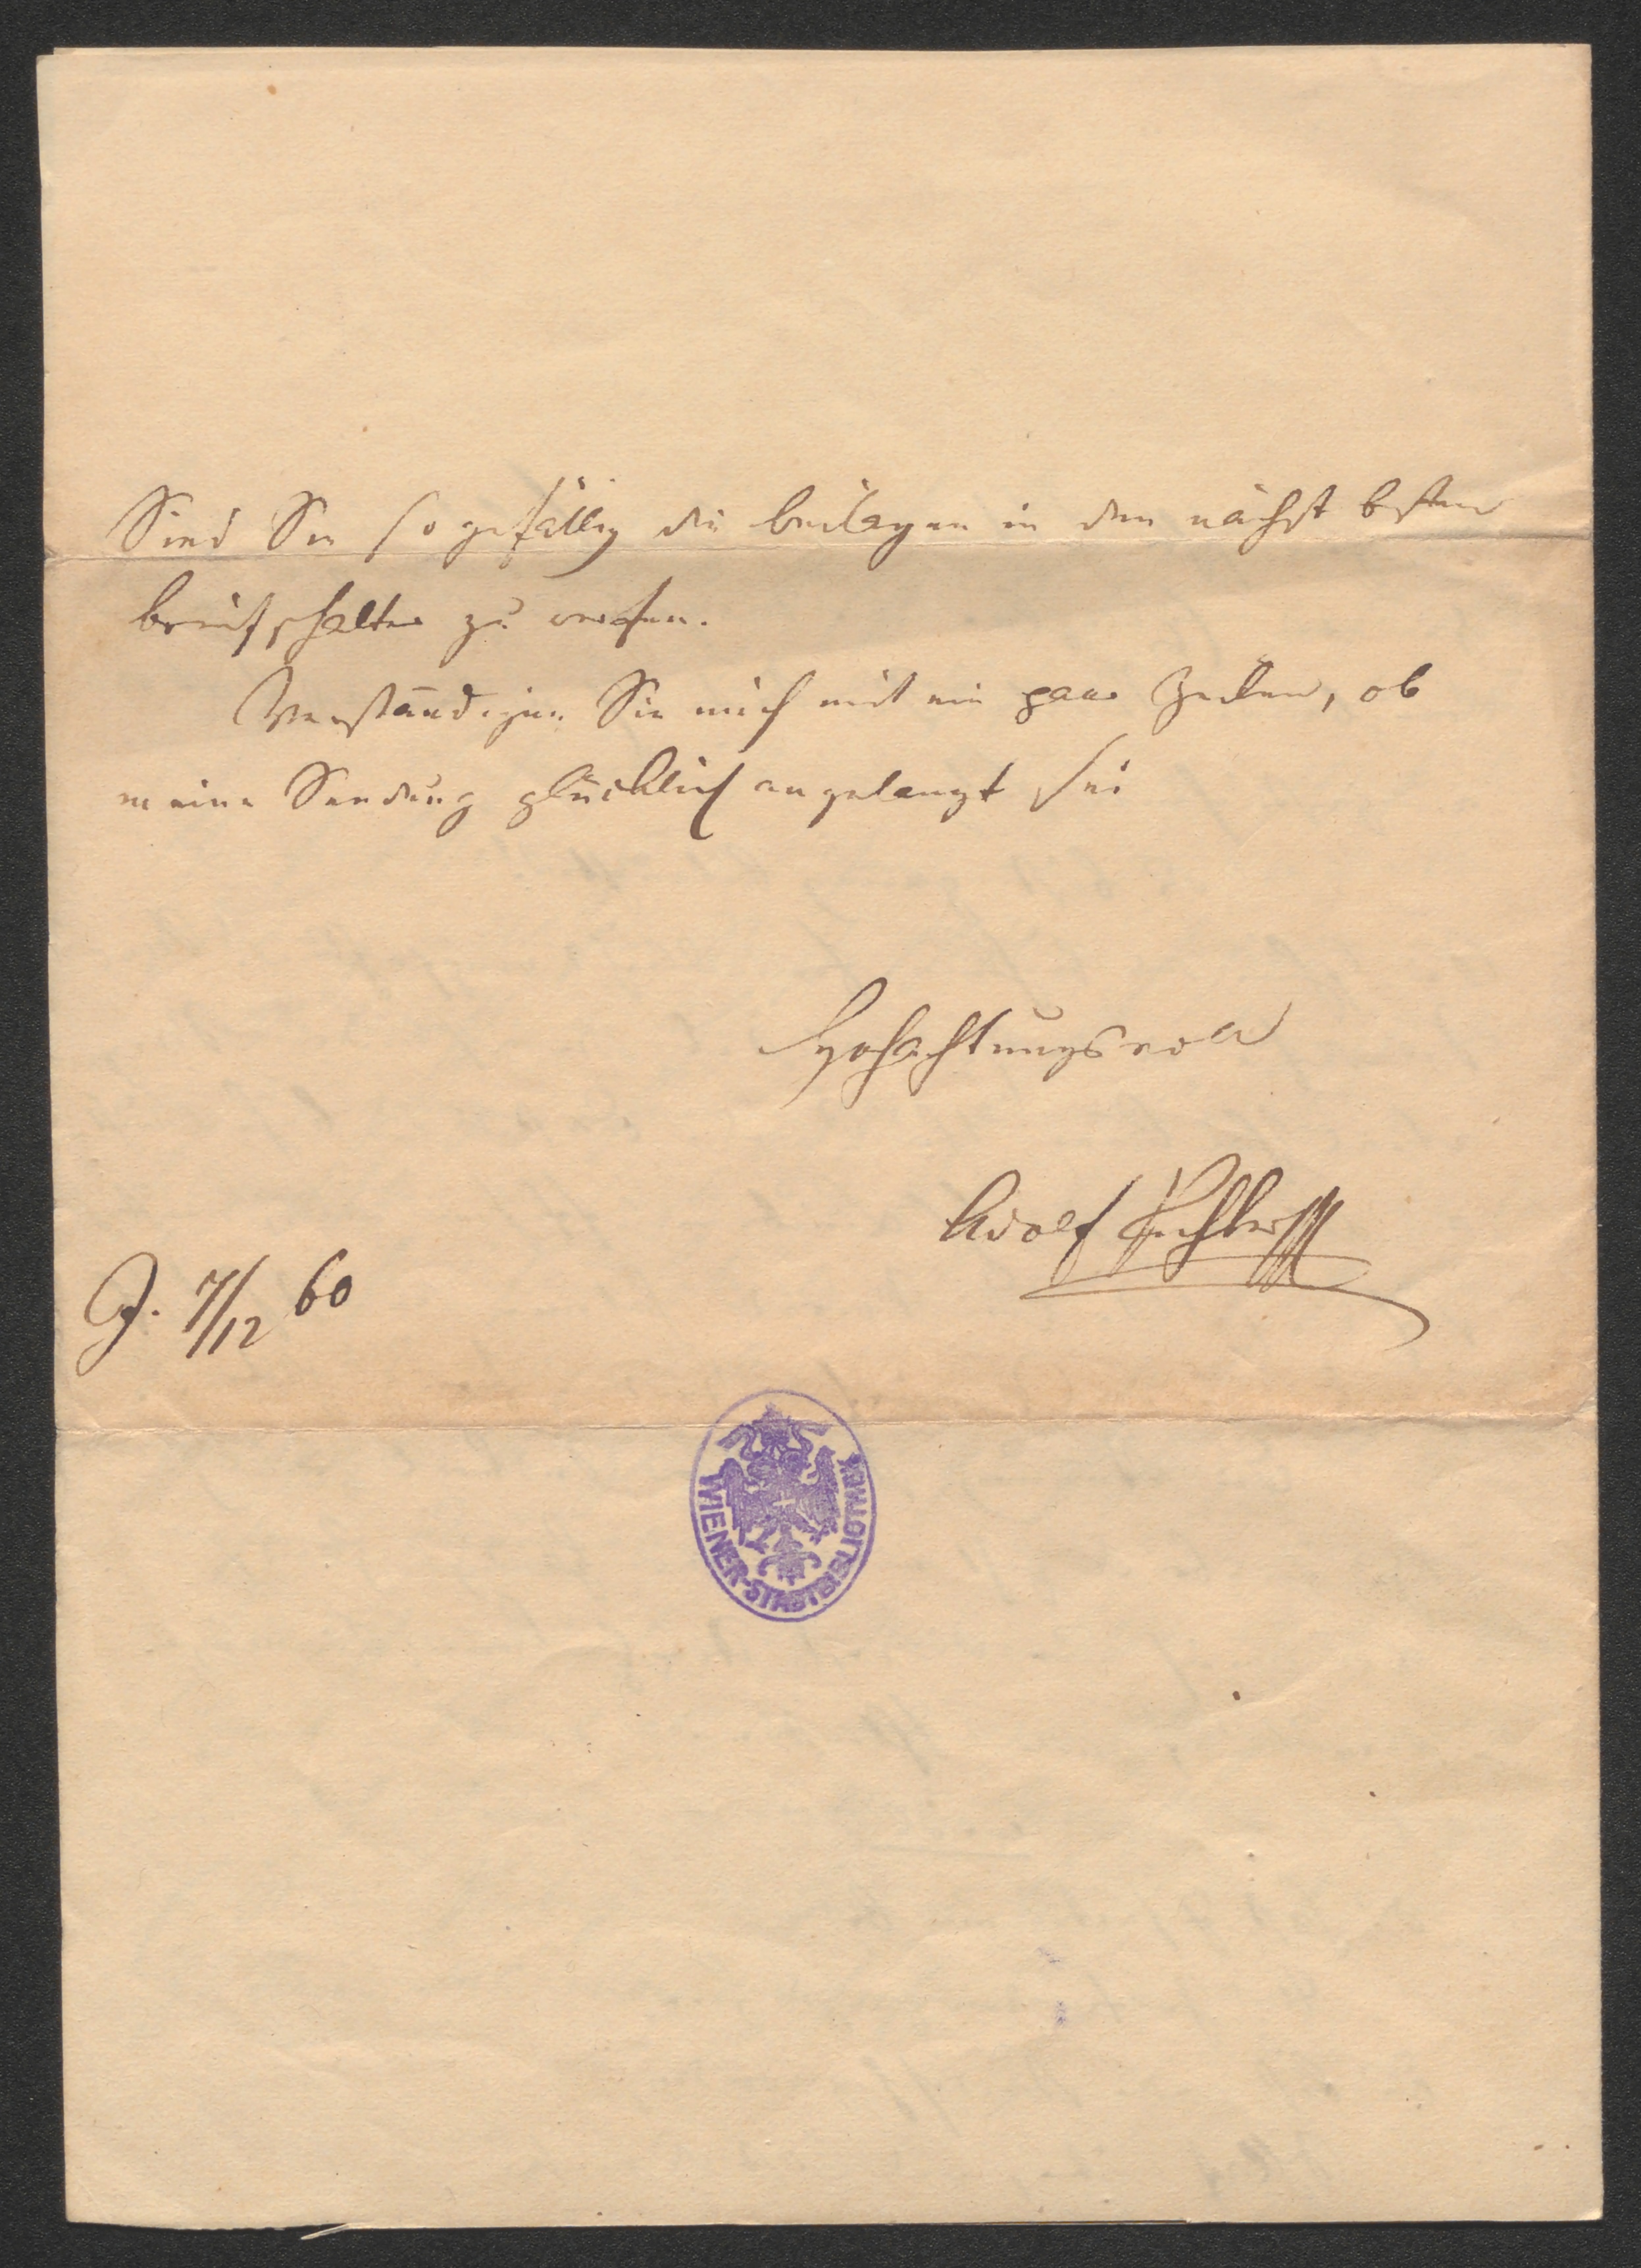 Sind Sie so gefällig die beilagen in den nächst besten
briefschalter zu werfen.
Verständigen Sie mich mit ein paar Zeilen, ob
meine Sendung glücklich angelangt sei
Hochachtungsvoll
Adolf Pichler
J. 7/12 60
WIENER-STADTBIBLIOTHEK